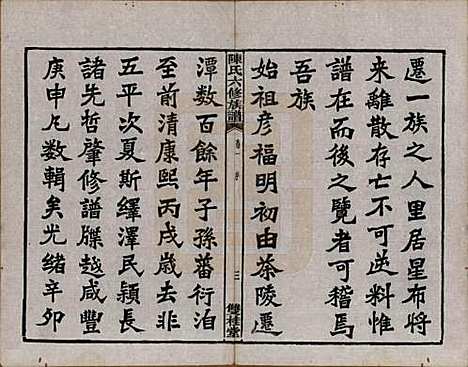 遷一族之人里居星布將
來離散存亡不可逆料惟
譜在而後之覽者可稽焉
吾族
始祖彦福明初由茶陵遷
陳氏六修族譜
卷一 序
三
雙桂堂
潭數百餘年子孫蕃衍洎
至前清康熙丙戌歲去非
五平次夏斯繹澤民穎長
諸先哲肇修譜牒越咸豐
庚申凡數輯矣光緒辛卯